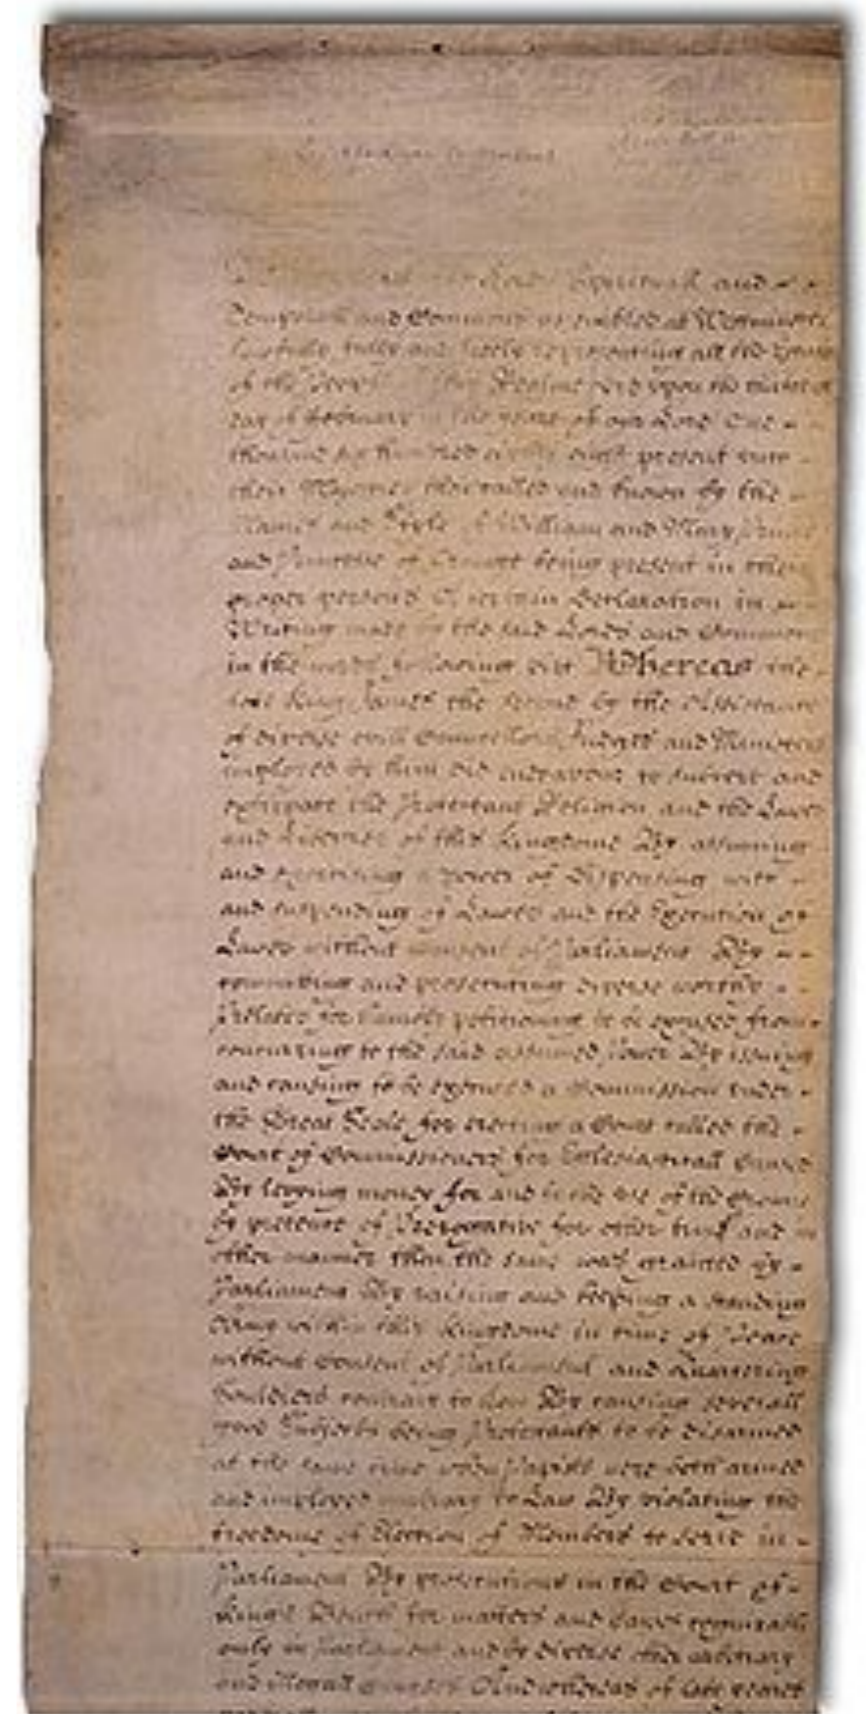 Lords Spirituall and
Temporall and Commons assembled at Westminster
Lawfully fully and freely representing all the Estates
of the People of this Realme did upon the thirteenth
day of February in the yeare of our Lord One
thousand six hundred eighty eight present unto
their Majesties then called and known by the
Names and Stile of William and Mary Prince
and Princesse of Orange being present in their
proper persons A certain Declaration in
Writing made by the said Lords and Commons
in the words following viz Whereas the
late King James the Second by the Assistance
of diverse evill Councellors Judges and Ministers
imployed by him did endeavour to subvert and
extirpate the Protestant Religion and the Lawes
and Liberties of this Kingdome By assuming
and exercising a power of dispensing with
and suspending of Lawes and the Execution of
Lawes without consent of Parliament By
committing and prosecuting diverse worthy
Prelates for humbly petitioning to be excused from
concurring to the said assumed Power By issueing
and causing to be executed a Commission under
the Great Seale for erecting a Court called the
Court of Commissioners for Ecclesiasticall Causes
By levying money for and to the use of the Crowne
by pretence of Prerogative for other time and in
other manner then the same was granted by
Parliament By raising and keeping a standing
Army within this Kingdome in time of Peace
without consent of Parliament and Quartering
Souldiers contrary to Law By causing severall
good Subjects being Protestants to be disarmed
at the same time when Papists were both armed
and imployed contrary to Law By violating the
freedome of Election of Members to serve in
Parliament By prosecutions in the Court of
Kings Bench for matters and causes cognizable
only in Parliament and by diverse other arbitrary
and illegall Courses And whereas of late yeares